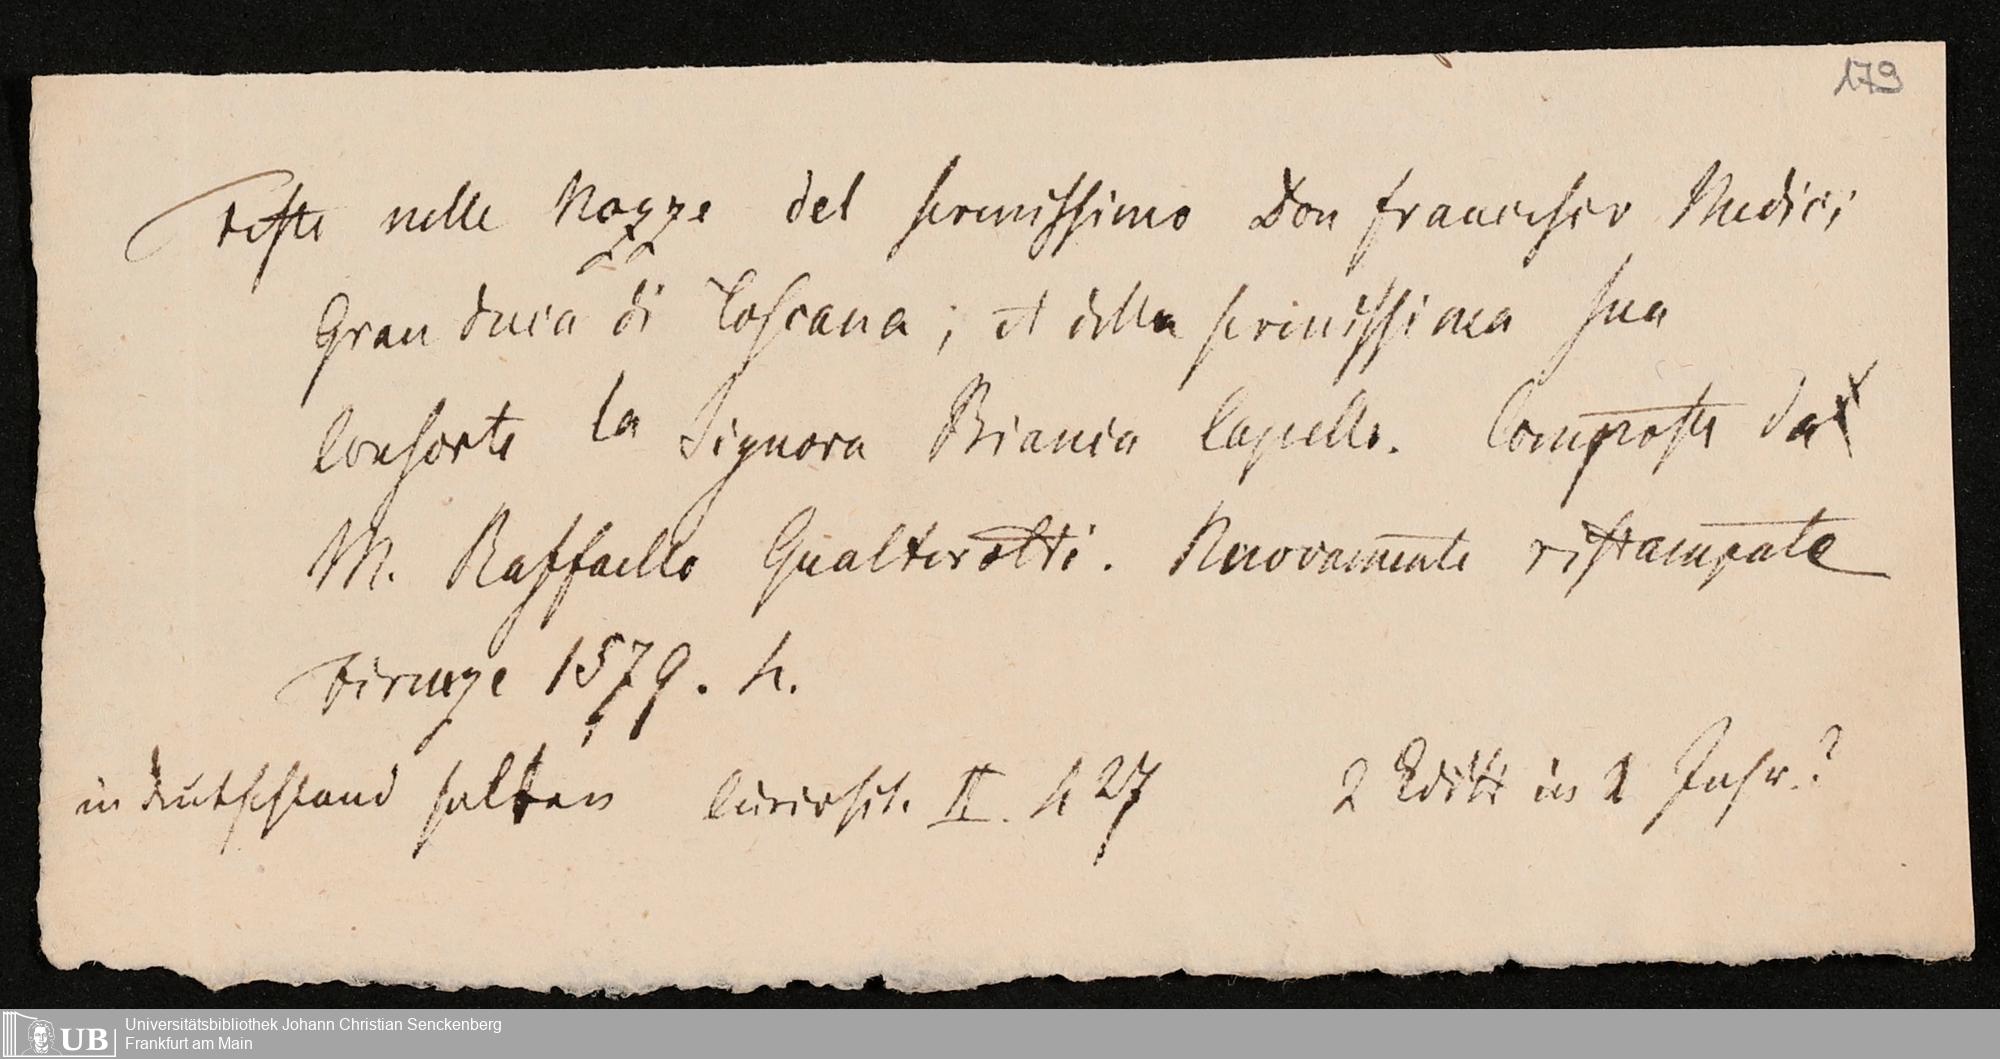 179
Feste nelle Nozze del serenissimo Don Francesco Medici
Gran Duca di Toscana; et della serenissima sua
Consorte la Signora Bianca Capello. Composte da
M. Raffaello Gualterotti. Nuovamente ristampate
Firenze 1579. 4.
in Deutschland selten Curiosit. II. 427 2 Editt in 1 Jahr.?
UB
Universitätsbibliothek Johann Christian Senckenberg
Frankfurt am Main